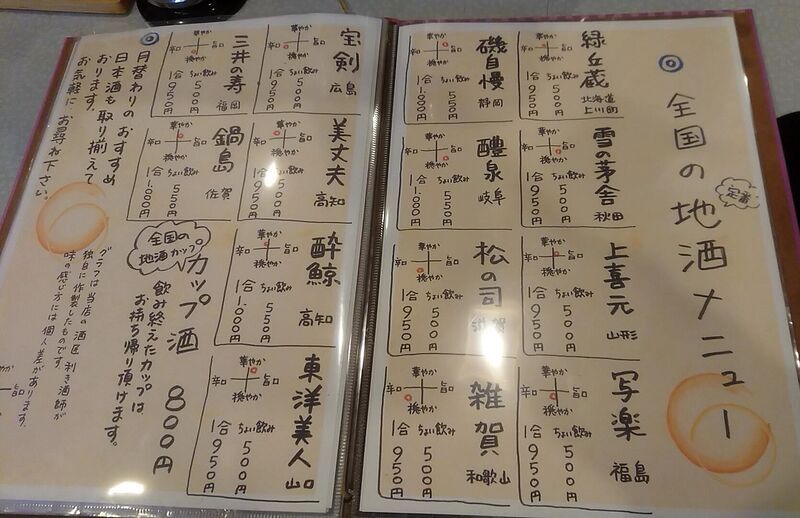 ◎全国の地酒メニュー
定番
緑丘蔵
北海道
上川町
華やか
辛口 旨口
穏やか
ちょい飲み 500円
1合 950円
雪の茅舎
秋田
華やか
辛口 旨口
穏やか
ちょい飲み 500円
1合 950円
上喜元
山形
華やか
辛口 旨口
穏やか
ちょい飲み 500円
1合 950円
写楽
福島
華やか
辛口 旨口
穏やか
ちょい飲み 500円
1合 950円
磯自慢
静岡
華やか
辛口 旨口
穏やか
ちょい飲み 550円
1合 1,000円
醴泉
岐阜
華やか
辛口 旨口
穏やか
ちょい飲み 550円
1合 1,000円
松の司
滋賀
華やか
辛口 旨口
穏やか
ちょい飲み 500円
1合 950円
雑賀
和歌山
華やか
辛口 旨口
穏やか
ちょい飲み 500円
1合 950円
宝剣
広島
華やか
辛口 旨口
穏やか
ちょい飲み 500円
1合 950円
美丈夫
高知
華やか
辛口 旨口
穏やか
ちょい飲み 500円
1合 950円
酔鯨
高知
華やか
辛口 旨口
穏やか
ちょい飲み 550円
1合 1,000円
東洋美人
山口
華やか
辛口 旨口
穏やか
ちょい飲み 500円
1合 950円
三井の寿
福岡
華やか
辛口 旨口
穏やか
ちょい飲み 500円
1合 950円
鍋島
佐賀
華やか
辛口 旨口
穏やか
ちょい飲み 550円
1合 1,000円
全国の
地酒カップ
カップ酒 800円
飲み終えたカップは
お持ち帰り頂けます。
◎月替わりのおすすめ
日本酒も取り揃えて
おります。
お気軽にお尋ね下さい。
グラフは当店の酒匠、利き酒師が
独自に作製したものです。
味の感じ方には個人差があります。